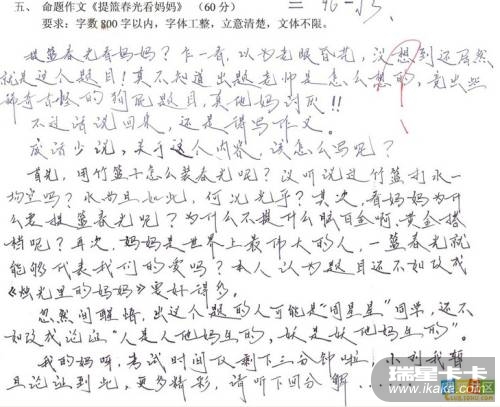 五、 命题作文《提篮春光看妈妈》（60分）
要求：字数800字以内，字体工整，立意清楚，文体不限。
提篮春光看妈妈？乍一看，以为老眼昏花，没想到还居然
就是这个题目！真不知道出题老师是怎么想的，竟出些
稀奇古怪的狗屁题目，真他妈讨厌!!
不过话说回来，还是得写作文。
废话少说，关于这个内容，该怎么写呢？
首先，用竹篮子怎么装春光呢？没听说过竹篮打水一
场空吗？水尚且如此，何况光乎？其次，看妈妈为什
么要提篮春光呢？为什么不提什么脑白金啊，黄金搭
档呢？再次，妈妈是世界上最伟大的人，一篮春光就
能够代表我们的爱吗？本人认为题目还不如改成
《烛光里的妈妈》要好得多。
忽然间醒悟，出这个题的人可能是“周星星”同学，还不
如改成论证“人是人他妈生的，妖是妖他妈生的”。
我的妈呀，考试时间仅剩下三分钟啦，小利我暂
且论证到此，更多精彩，请听下回分解......
瑞星卡卡
www.ikaka.com
社区